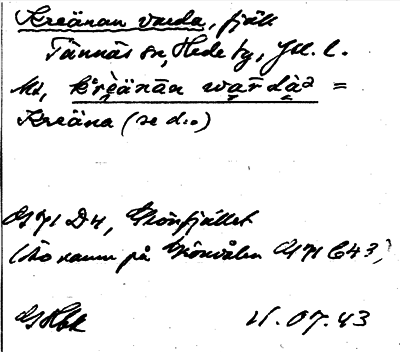 Kreänan varda, fjäll
Tännäs sn, Hede tg, Jtl. l.
kreänan warda =
Kreäna (se d:o)
GS71 D4, Skönfjället
(Sö namn på Skönvålen GS71 C43)
GHbk
.07.43